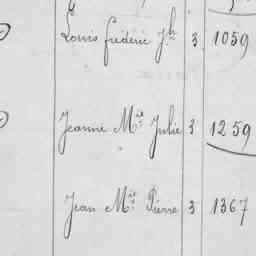 Louis frédéric Jh 3 1059
Jeanne Mie Julie 3 1259
Jean Mie Pierre 3 1367